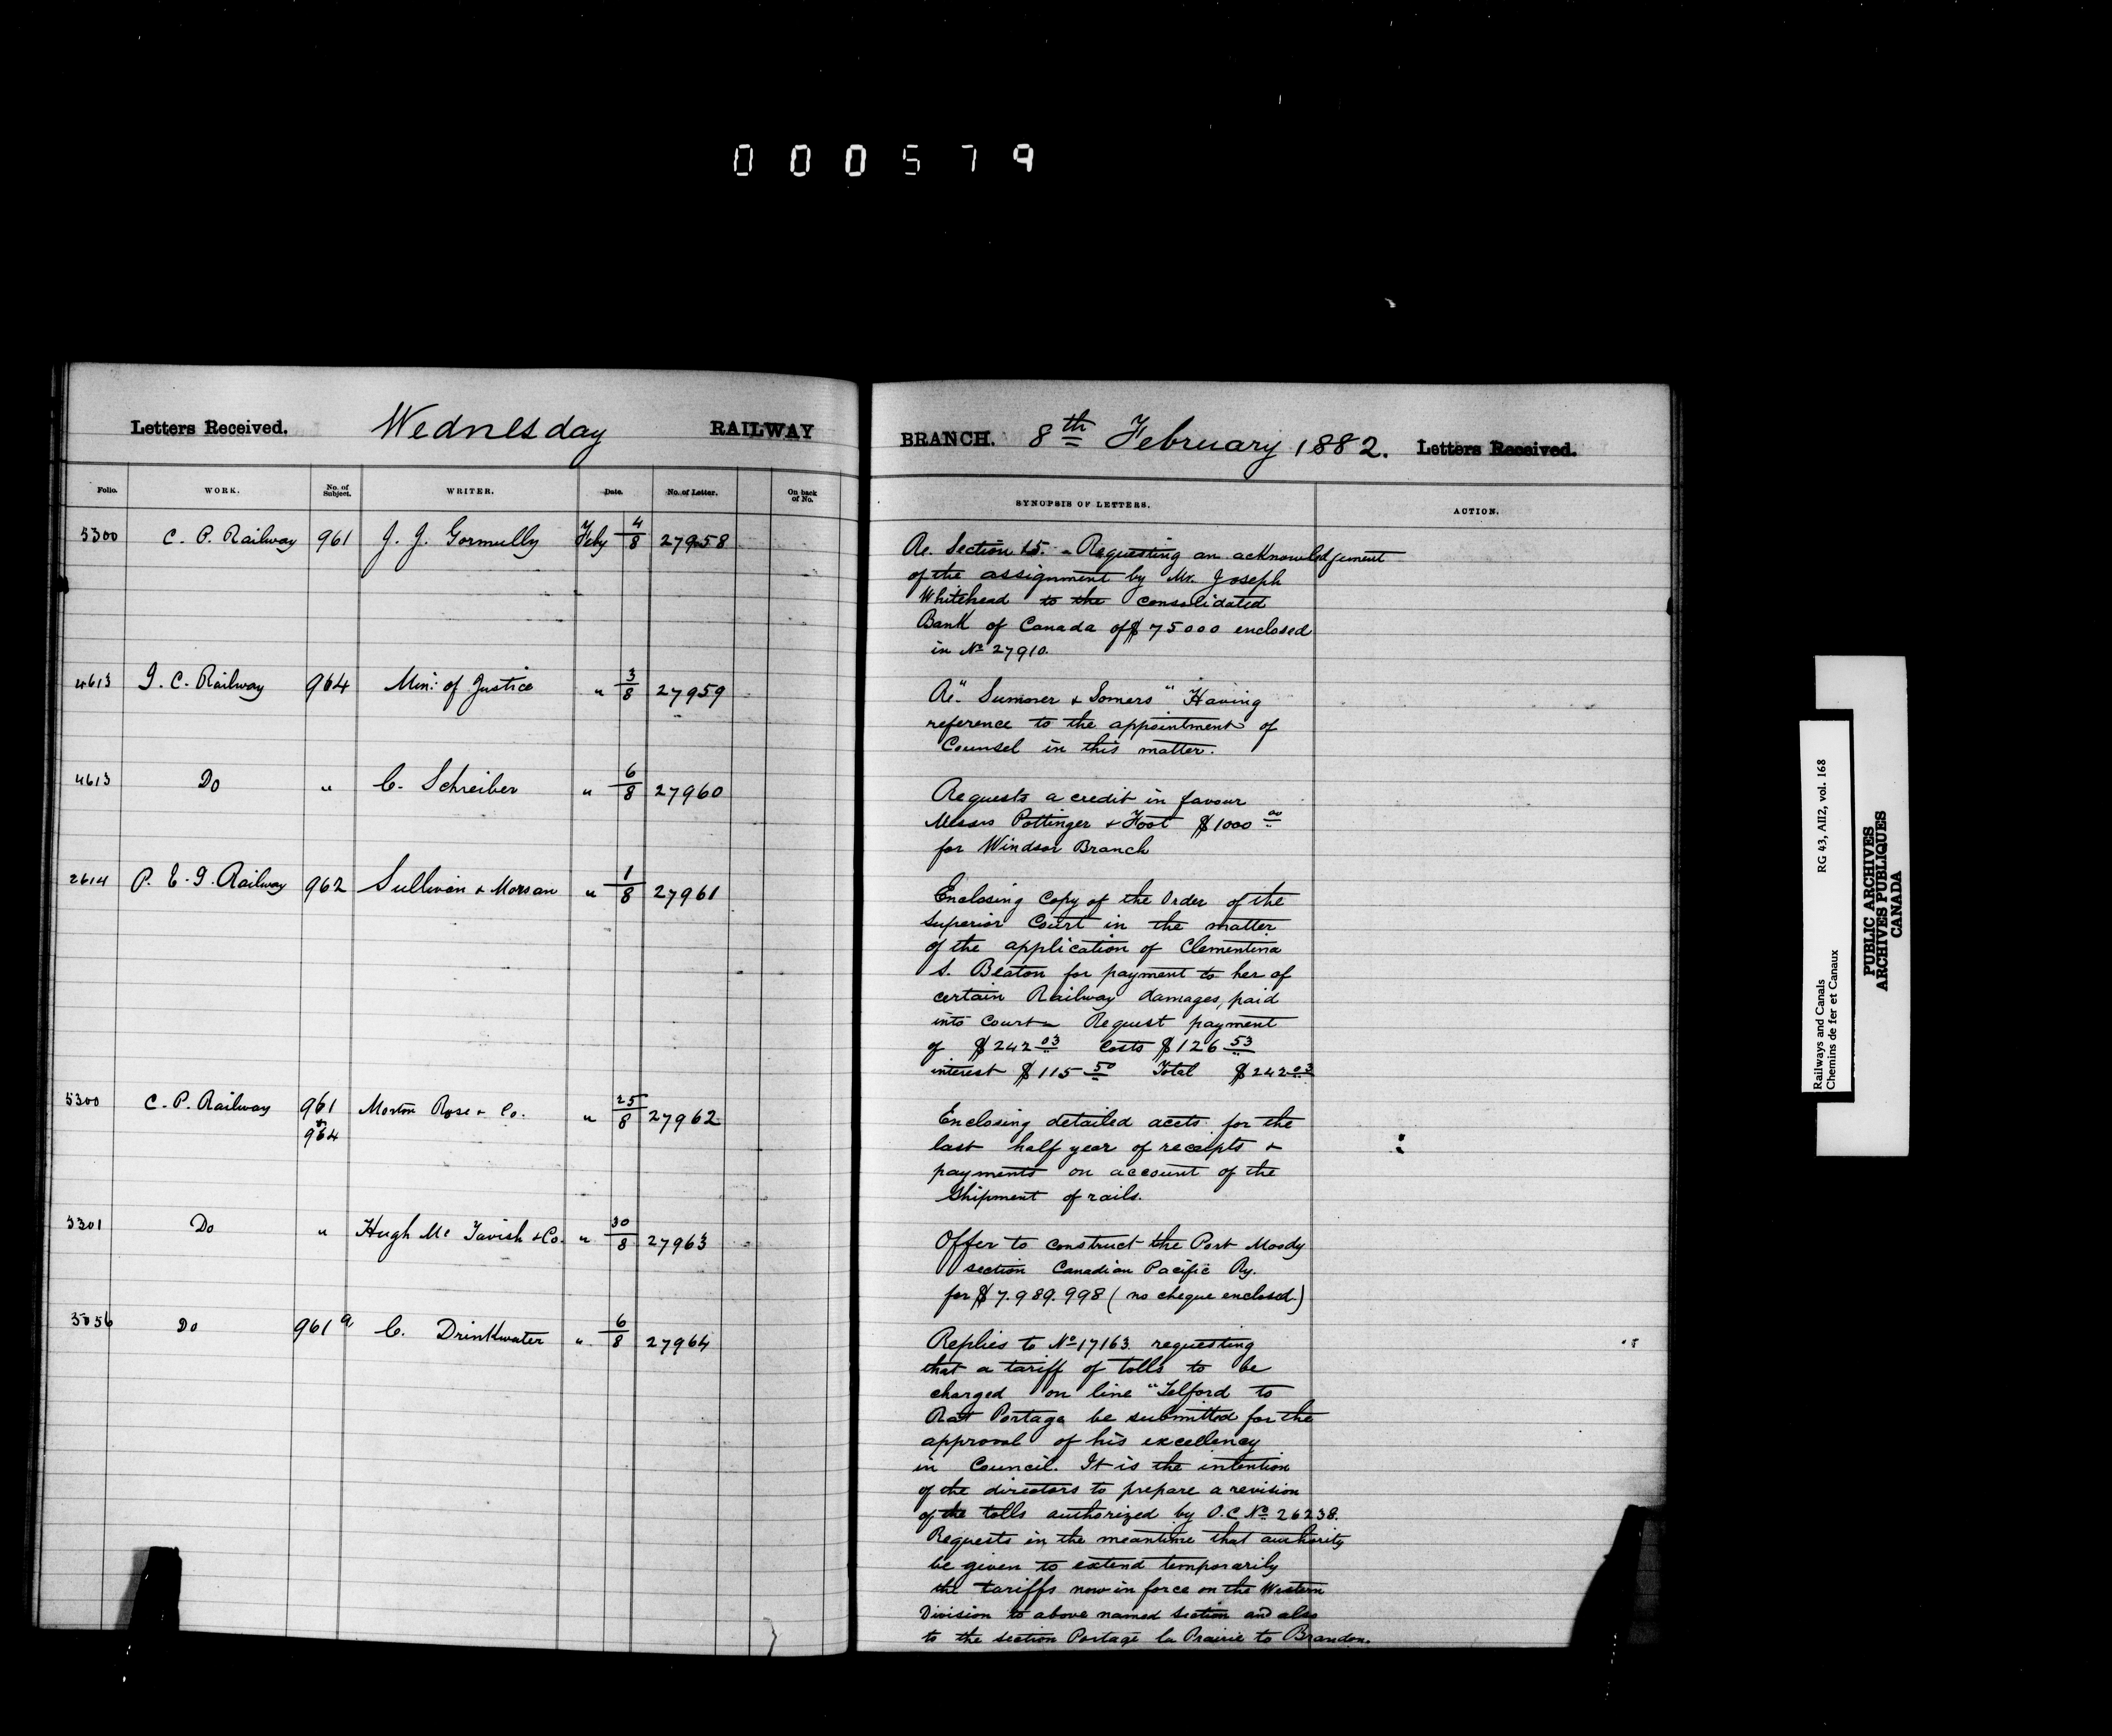 000579
Letters Received. Wednesday RAILWAY
Folio. WORK. No. of Subject. WRITER. Date. No. of Letter. On back of No.
5300 C. P. Railway 961 J. J. Gormully Feby 4/8 27958
4613 I. C. Railway 964 Min: of Justice " 3/8 27959
4613 Do " C. Schreiber " 6/8 27960
2614 P. E. I. Railway 962 Sullivan & Morson " 1/8 27961
5300 C. P. Railway 961 & 964 Morton Rose & Co. " 25/8 27962
5301 Do " Hugh Mc Tavish & Co. " 30/8 27963
5056 Do 961 a C. Drinkwater " 6/8 27964
BRANCH. 8th February 1882. Letters Received.
SYNOPSIS OF LETTERS. ACTION.
Re. Section 15. - Requesting an acknowledgement
of the assignment by Mr. Joseph
Whitehead to the Consolidated
Bank of Canada of $75000 enclosed
in No 27910.
Re. "Sumner & Somers" Having
reference to the appointment of
Counsel in this matter.
Requests a credit in favour
Messrs Pottinger & Foot $1000 00
for Windsor Branch
Enclosing Copy of the Order of the
Superior Court in the matter
of the application of Clementina
S. Beaton for payment to her of
certain Railway damages, paid
into Court - Request payment
of $242 03 Costs $126 53
interest $115 50 Total $242 03
Enclosing detailed accts for the
last half year of receipts &
payments on account of the
Shipment of rails.
Offer to construct the Port Moody
section Canadian Pacific Ry.
for $7.989.998 (no cheque enclosed.)
Replies to No 17163 requesting
that a tariff of tolls to be
charged on line "Telford to
Rat Portage be submitted for the
approval of his excellency
in Council. It is the intention
of the directors to prepare a revision
of the tolls authorized by O.C No 26238.
Requests in the meantime that authority
be given to extend temporarily
the tariffs now in force on the Western
Division to above named section and also
to the section Portage la Prairie to Brandon.
Railways and Canals RG 43, AII2, vol. 168
Chemins de fer et Canaux
PUBLIC ARCHIVES
ARCHIVES PUBLIQUES
CANADA